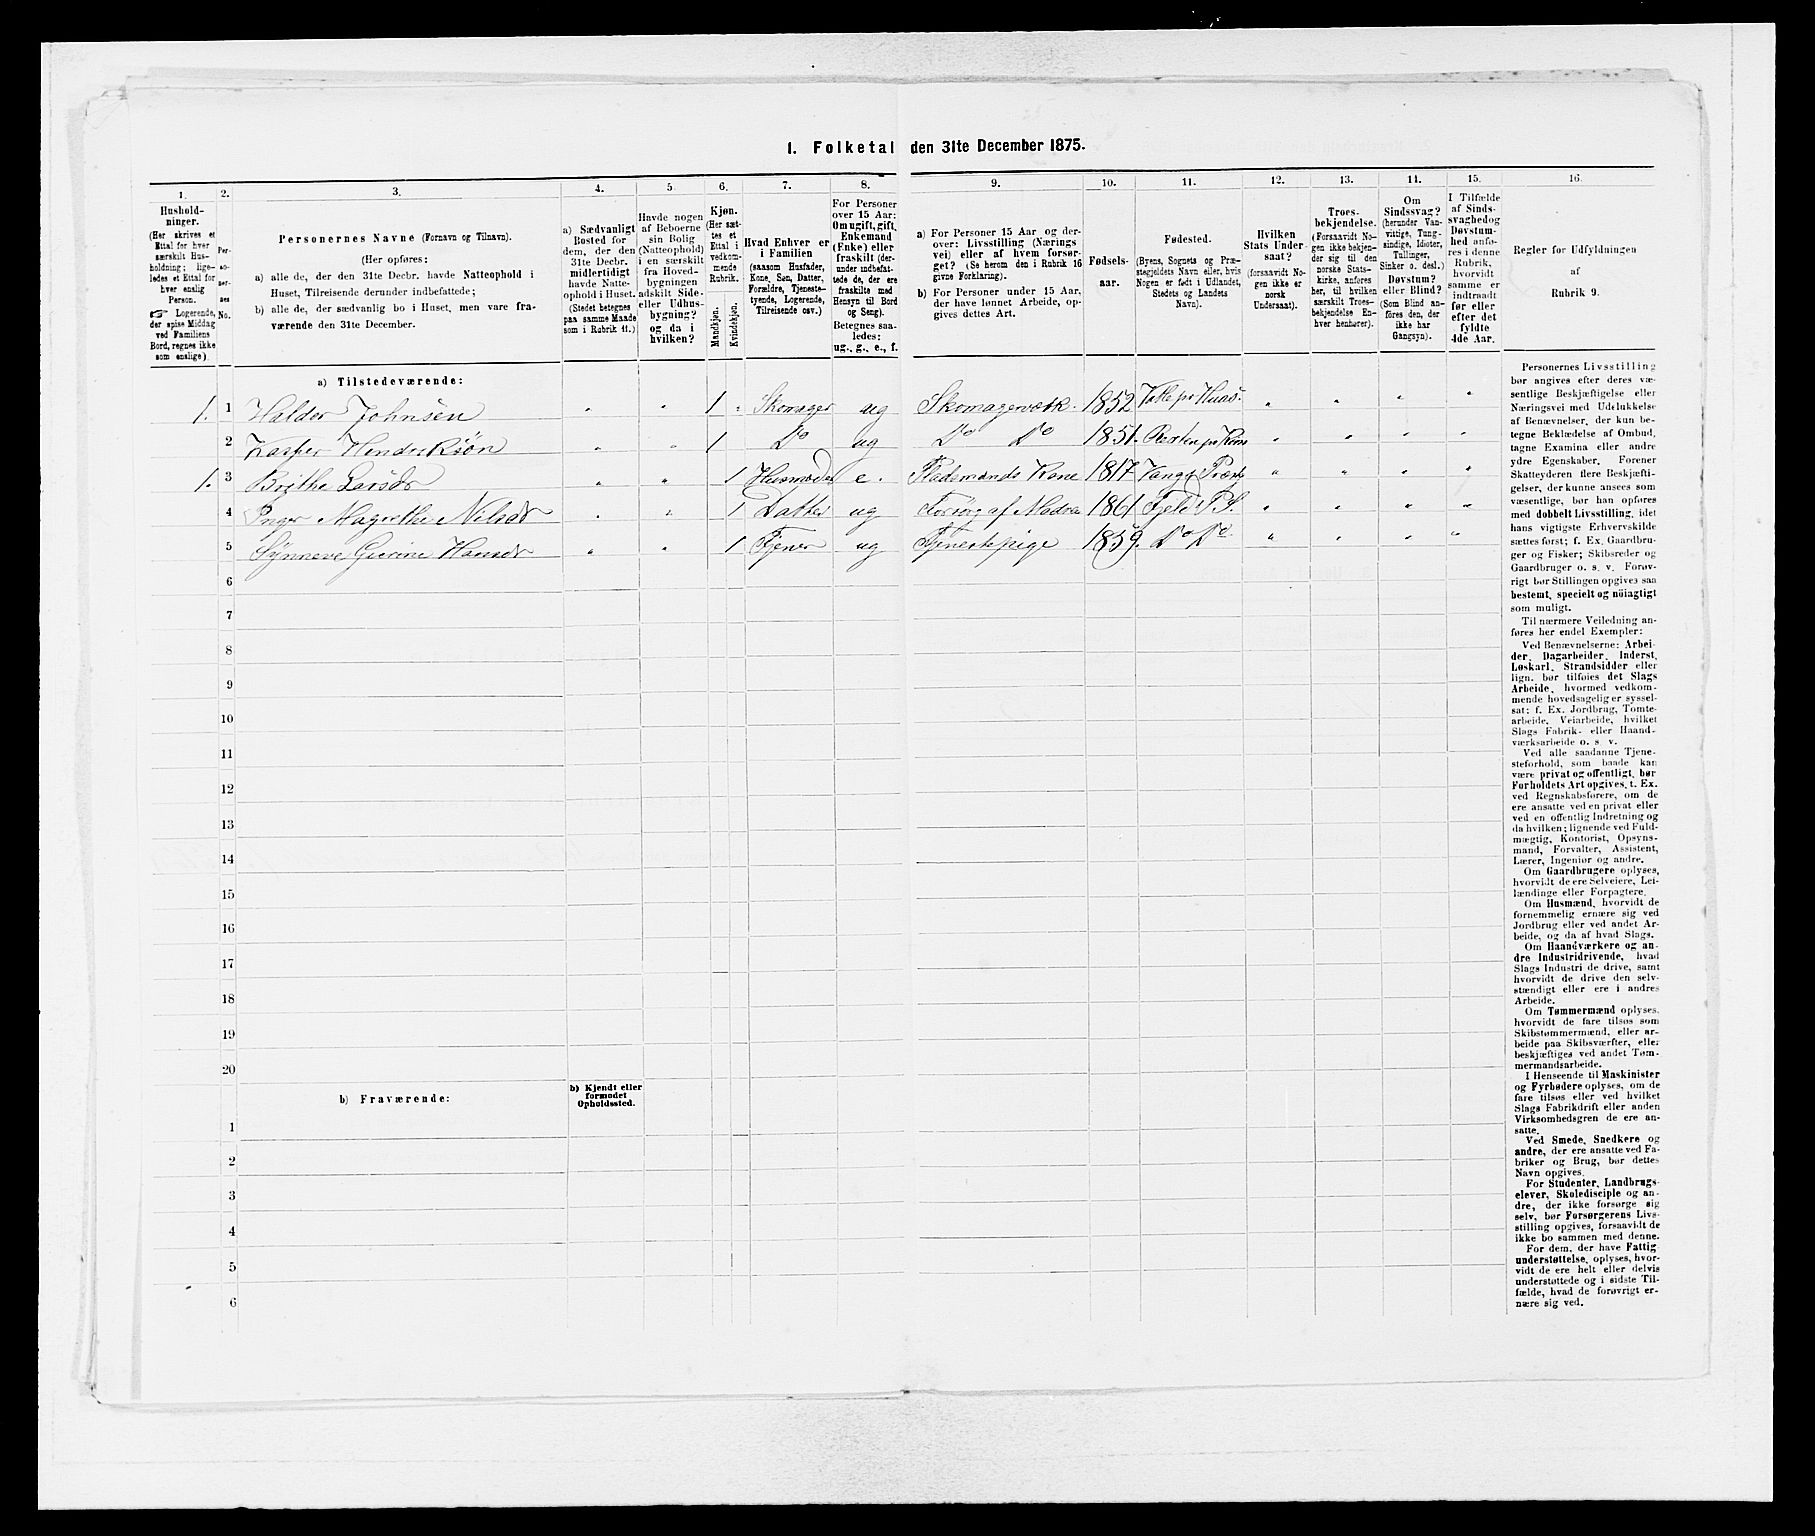 1. Folketal den 31te December 1875.
1.
2.
3.
4.
5.
6.
7.
8.
9.
10.
11.
12.
13.
14.
15.
16.
Hushold-
ninger.
(Her skrives et
Ettal for hver
særskilt Hus-
holdning; lige-
ledes et Ettal for
hver enslig
Person.
☞ Logerende,
der spise Middag
ved Familiens
Bord, regnes ikke
som enslige).
Per-
so-
ner-
nes
No.
Personernes Navne (Fornavn og Tilnavn).
(Her opføres:
a) alle de, der den 31te Decbr. havde Natteophold i
Huset, Tilreisende derunder indbefattede;
b) alle de, der sædvanlig bo i Huset, men vare fra-
værende den 31te December.
a) Sædvanligt
Bosted for
dem, der den
31te Decbr.
midlertidigt
havde Natte-
ophold i Huset.
(Stedet betegnes
paa samme Maade
som i Rubrik 11.)
Havde nogen
af Beboerne
sin Bolig
(Natteophold)
i en særskilt
fra Hoved-
bygningen
adskilt Side-
eller Udhus-
bygning?
og da i
hvilken?
Kjøn.
(Her sæt-
tes et
Ettal i
vedkom-
mende
Rubrik.
Mandkjøn.
Kvindekjøn.
Hvad Enhver er
i Familien
(saasom Husfader,
Kone, Søn, Datter,
Forældre, Tjeneste-
tyende, Logerende,
Tilreisende osv.)
For Personer
over 15 Aar:
Om ugift, gift,
Enkemand
(Enke) eller
fraskilt (der-
under indbefat-
tede de, der ere
fraskilte med
Hensyn til Bord
og Seng).
Betegnes saa-
ledes:
ug., g., e., f.
a) For Personer 15 Aar og der-
over: Livsstilling (Nærings
vei) eller af hvem forsør-
get? (Se herom den i Rubrik 16
givne Forklaring).
b) For Personer under 15 Aar,
der have lønnet Arbeide, op-
gives dettes Art.
Fødsels-
aar.
Fødested.
(Byens, Sognets og Præ-
stegjeldets Navn eller, hvis
Nogen er født i Udlandet,
Stedets og Landets
Navn).
Hvilken
Stats Under-
saat?
(forsaavidt No-
gen ikke er
norsk
Undersaat).
Troes-
bekjendelse.
(Forsaavidt No-
gen ikke bekjen-
der sig til den
norske Stats-
kirke, anføres
her, til hvilken
særskilt Troes-
bekjendelse En-
hver henhører).
Om
Sindssvag?
(herunder Van-
vittige, Tung-
sindige, Idioter,
Tullinger,
Sinker o. desl.)
Døvstum?
eller Blind?
(Som Blind an-
føres den, der
ikke har
Gangsyn).
I Tilfælde
af Sinds-
svaghed og
Døvstum-
hed anfø-
res i denne
Rubrik,
hvorvidt
samme er
indtraadt
før eller
efter det
fyldte
4de Aar.
Regler for Udfyldningen
af
Rubrik 9.
a) Tilstedeværende:
1. 1 Halder Johnsen „ „ 1 „ Skomager ug Skomagerværk. 1852 „ „ „ „
2 Kasper Hendriksøn „ „ 1 Do ug Do Do 1851. „ „ „ „
1. 3 Brithe Larsdr „ „ 1 Husmoder e. Kone 1817 „ „ „ „
4 Inger Magrethe Nilsdr „ „ 1 Datter ug Forsörg af Modren 1861 Fjeld P. S. „ „ „ „
5 Synneve Gurine Hansdr „ „ 1 Tjener ug Tjenestepige 1859. Do Do „ „ „ „
6
7
8
9
10
11
12
13
14
15
16
17
18
19
20
b) Fraværende:
b) Kjendt eller
formodet
Opholdssted.
1
2
3
4
5
6
Personernes Livsstilling
bør angives efter deres væ-
sentlige Beskjæftigelse eller
Næringsvei med Udelukkelse
af Benævnelser, der kun be-
tegne Beklædelse af Ombud,
tagne Examina eller andre
ydre Egenskaber. Forener
Skatteyderen flere Beskjæfti-
gelser, der kunne ansees som
væsentlige, bør han opføres
med dobbelt Livsstilling, idet
hans vigtigste Erhvervskilde
sættes først; f. Ex. Gaardbru-
ger og Fisker; Skibsreder og
Gaardbruger o. s. v. Forøv-
rigt bør Stillingen opgives saa
bestemt, specielt og nöiagtigt
som muligt.
Til nærmere Veiledning an-
føres her endel Exempler:
Ved Benævnelserne: Arbei-
der, Dagarbeider, Inderst,
Løskarl, Strandsidder eller
lign. bør tilføies det Slags
Arbeide, hvormed vedkom-
mende hovedsagelig er syssel-
sat; f. Ex. Jordbrug, Tomte-
arbeide, Veiarbeide, hvilket
Slags Fabrik- eller Haand-
værksarbeide o. s. v.
Ved alle saadanne Tjene-
steforhold, som baade kan
være privat og offentligt, bør
Forholdets Art opgives, t. Ex.
ved Regnskabsførere, om de
ere ansatte ved en privat eller
ved en offentlig Indretning og
da hvilken; lignende ved Fuld-
mægtig, Kontorist, Opsyns-
mand, Forvalter, Assistent,
Lærer, Ingeniør og andre.
Om Gaardbrugere oplyses,
hvorvidt de ere Selveiere, Lei-
lændinge eller Forpagtere.
Om Husmænd, hvorvidt de
fornemmelig ernære sig ved
Jordbrug eller ved andet Ar-
beide, og da af hvad Slags.
Om Haandværkere og an-
dre Industridrivende, hvad
Slags Industri de drive, samt
hvorvidt de drive den selv-
stændigt eller ere i andres
Arbeide.
Om Tømmermænd oplyses,
hvorvidt de fare tilsøs som
Skibstømmermænd, eller ar-
beide paa Skibsværfter, eller
beskjæftiges ved andet Tøm-
mermandsarbeide.
I Henseende til Maskinister
og Fyrbødere oplyses, om de
fare tilsøs eller ved hvilket
Slags Fabrikdrift eller anden
Virksomhedsgren de ere an-
satte.
Ved Smede, Snedkere og
andre, der ere ansatte ved Fa-
briker og Brug, bør dettes
Navn opgives.
For Studenter, Landbrugs-
elever, Skoledisciple og an-
dre, der ikke forsørge sig
selv, bør Forsørgerens Livs-
stilling opgives, forsaavidt de
ikke bo sammen med denne.
For dem, der have Fattig-
understøttelse, oplyses, hvor-
vidt de ere helt eller delvis
understøttede og i sidste Til-
fælde, hvad de forøvrigt er-
nære sig ved.